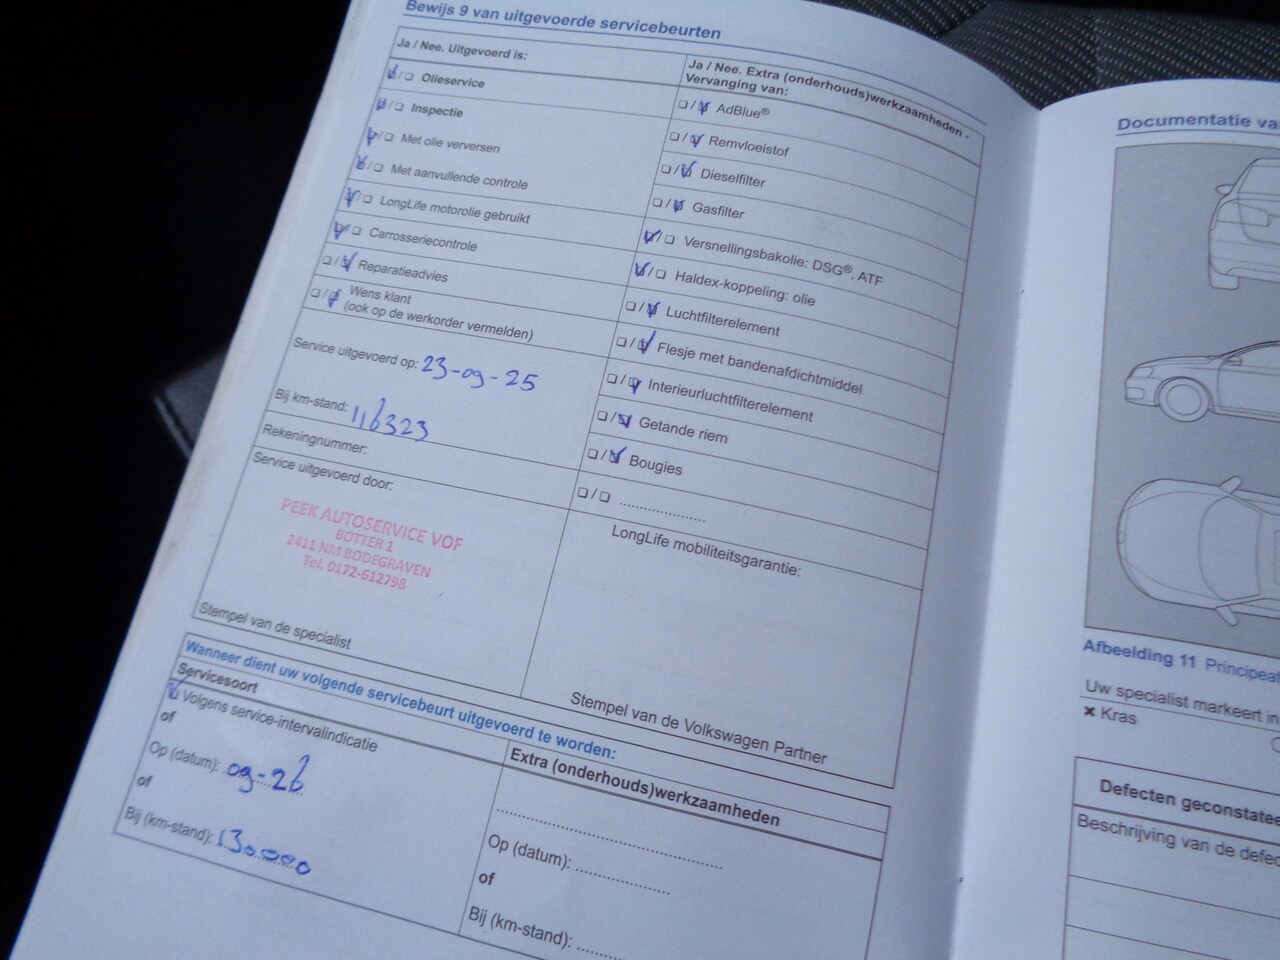 Bewijs 9 van uitgevoerde servicebeurten
Ja / Nee. Uitgevoerd is:
Olieservice
Inspectie
Met olie verversen
Met aanvullende controle
LongLife motorolie gebruikt
Carrosseriecontrole
Reparatieadvies
Wens klant
(ook op de werkorder vermelden)
Service uitgevoerd op: 23-09-25
Bij km-stand: 116323
Rekeningnummer:
Service uitgevoerd door:
PEEK AUTOSERVICE VOF
BOTTER 1
2411 NM BODEGRAVEN
Tel. 0172-612798
Stempel van de specialist
Ja / Nee. Extra (onderhouds)werkzaamheden -
Vervanging van:
AdBlue®
Remvloeistof
Dieselfilter
Gasfilter
Versnellingsbakolie: DSG®, ATF
Haldex-koppeling: olie
Luchtfilterelement
Flesje met bandenafdichtmiddel
Interieurluchtfilterelement
Getande riem
Bougies
LongLife mobiliteitsgarantie:
Stempel van de Volkswagen Partner
Wanneer dient uw volgende servicebeurt uitgevoerd te worden:
Servicesoort
Volgens service-intervalindicatie
of
Op (datum): 09-26
of
Bij (km-stand): 130.000
Extra (onderhouds)werkzaamheden
Op (datum):
of
Bij (km-stand):
Documentatie va
Afbeelding 11 Principeaf
Uw specialist markeert in
× Kras
Defecten geconstatee
Beschrijving van de defec